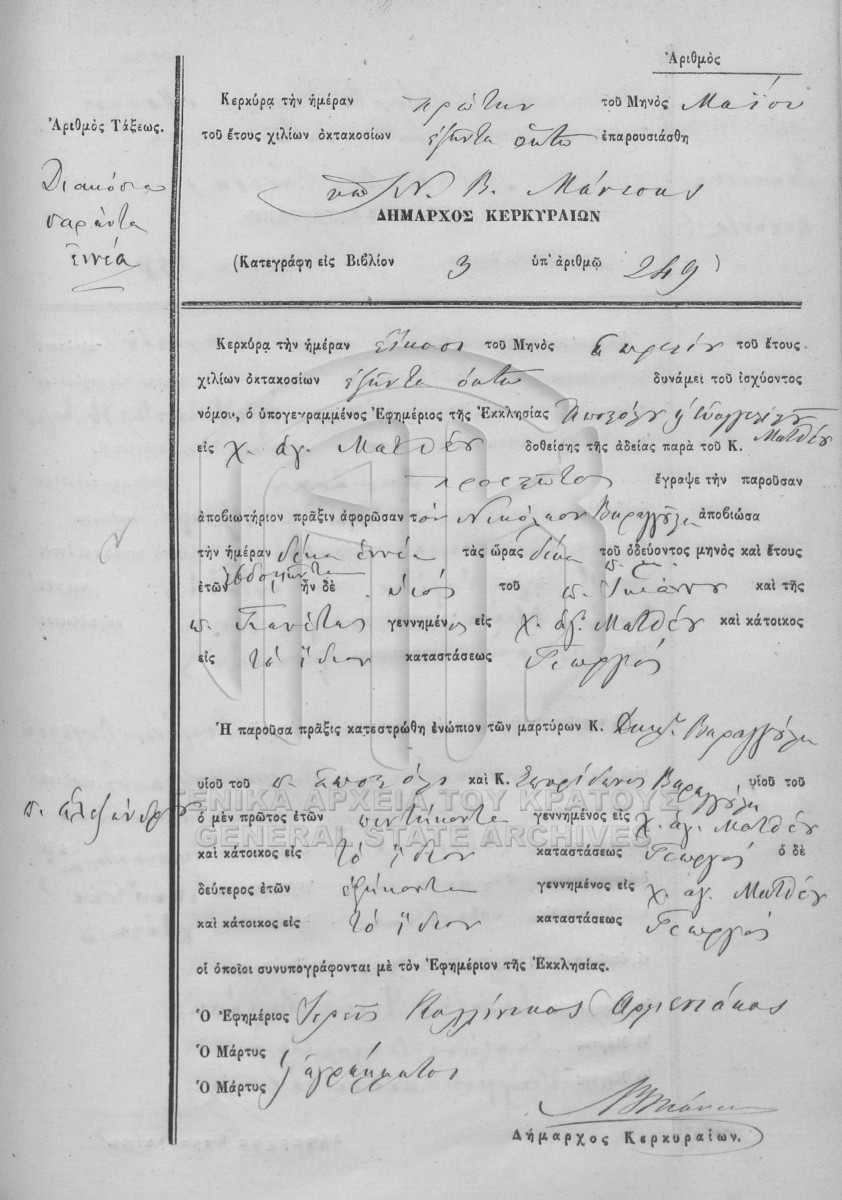 Ἀριθμὸς
Κερκύρα τὴν ἡμέραν πρώτην τοῦ Μηνὸς Μαΐου
Ἀριθμὸς Τάξεως.
τοῦ ἔτους χιλίων ὀκτακοσίων ἑξῆντα ὀκτὼ ἐπαρουσιάσθη
Διακόσια
σαράντα
ἐννέα
Ν. Β. Μάνεσης
ΔΗΜΑΡΧΟΣ ΚΕΡΚΥΡΑΙΩΝ
(Κατεγράφη εἰς Βιβλίον 3 ὑπ' ἀριθμῷ 249)
Κερκύρᾳ τὴν ἡμέραν εἴκοσι τοῦ Μηνὸς Ἀπριλίου τοῦ ἔτους
χιλίων ὀκτακοσίων ἑξῆντα ὀκτὼ δυνάμει τοῦ ἰσχύοντος
νόμου, ὁ ὑπογεγραμμένος Ἐφημέριος τῆς Ἐκκλησίας Ἀποστόλου & Εὐαγγελιστοῦ
Ματθέου
εἰς χ. ἁγ. Ματθέου δοθείσης τῆς ἀδείας παρὰ τοῦ Κ.
ἔγραψε τὴν παροῦσαν
ἀποβιωτήριον πρᾶξιν ἀφορῶσαν τὸν Νικόλαον Βαραγγούλη ἀποβιώσα
τὴν ἡμέραν δέκα ἐννέα τὰς ὥρας δέκα τοῦ ὁδεύοντος μηνὸς καὶ ἔτους
ἐτῶν ἑβδομῆντα ἦν δὲ υἱός τοῦ π. Ἰωάννου καὶ τῆς
π. γεννημένος εἰς χ. ἁγ. Ματθέου καὶ κάτοικος
εἰς τὸ ἴδιον καταστάσεως Γεωργός
Ἡ παροῦσα πρᾶξις κατεστρώθη ἐνώπιον τῶν μαρτύρων Κ. Βαραγγούλη
υἱοῦ τοῦ π. Ἀποστόλη καὶ Κ. Σπυρίδωνος Βαραγγούλη υἱοῦ τοῦ
π. Ἀλεξάνδρου
ΓΕΝΙΚΑ ΑΡΧΕΙΑ ΤΟΥ ΚΡΑΤΟΥΣ
ὁ μὲν πρῶτος ἐτῶν πεντήκοντα γεννημένος εἰς χ. ἁγ. Ματθέου
GENERAL STATE ARCHIVES
καὶ κάτοικος εἰς τὸ ἴδιον καταστάσεως Γεωργός ὁ δὲ
δεύτερος ἐτῶν ἑξήκοντα γεννημένος εἰς χ. ἁγ. Ματθέου
καὶ κάτοικος εἰς τὸ ἴδιον καταστάσεως Γεωργός
οἱ ὁποῖοι συνυπογράφονται μὲ τὸν Ἐφημέριον τῆς Ἐκκλησίας.
Ὁ Ἐφημέριος Ἱερεὺς Καλλίνικος Ἀρμενάκος
Ὁ Μάρτυς
ἀγράμματοι
Ὁ Μάρτυς
Δήμαρχος Κερκυραίων.